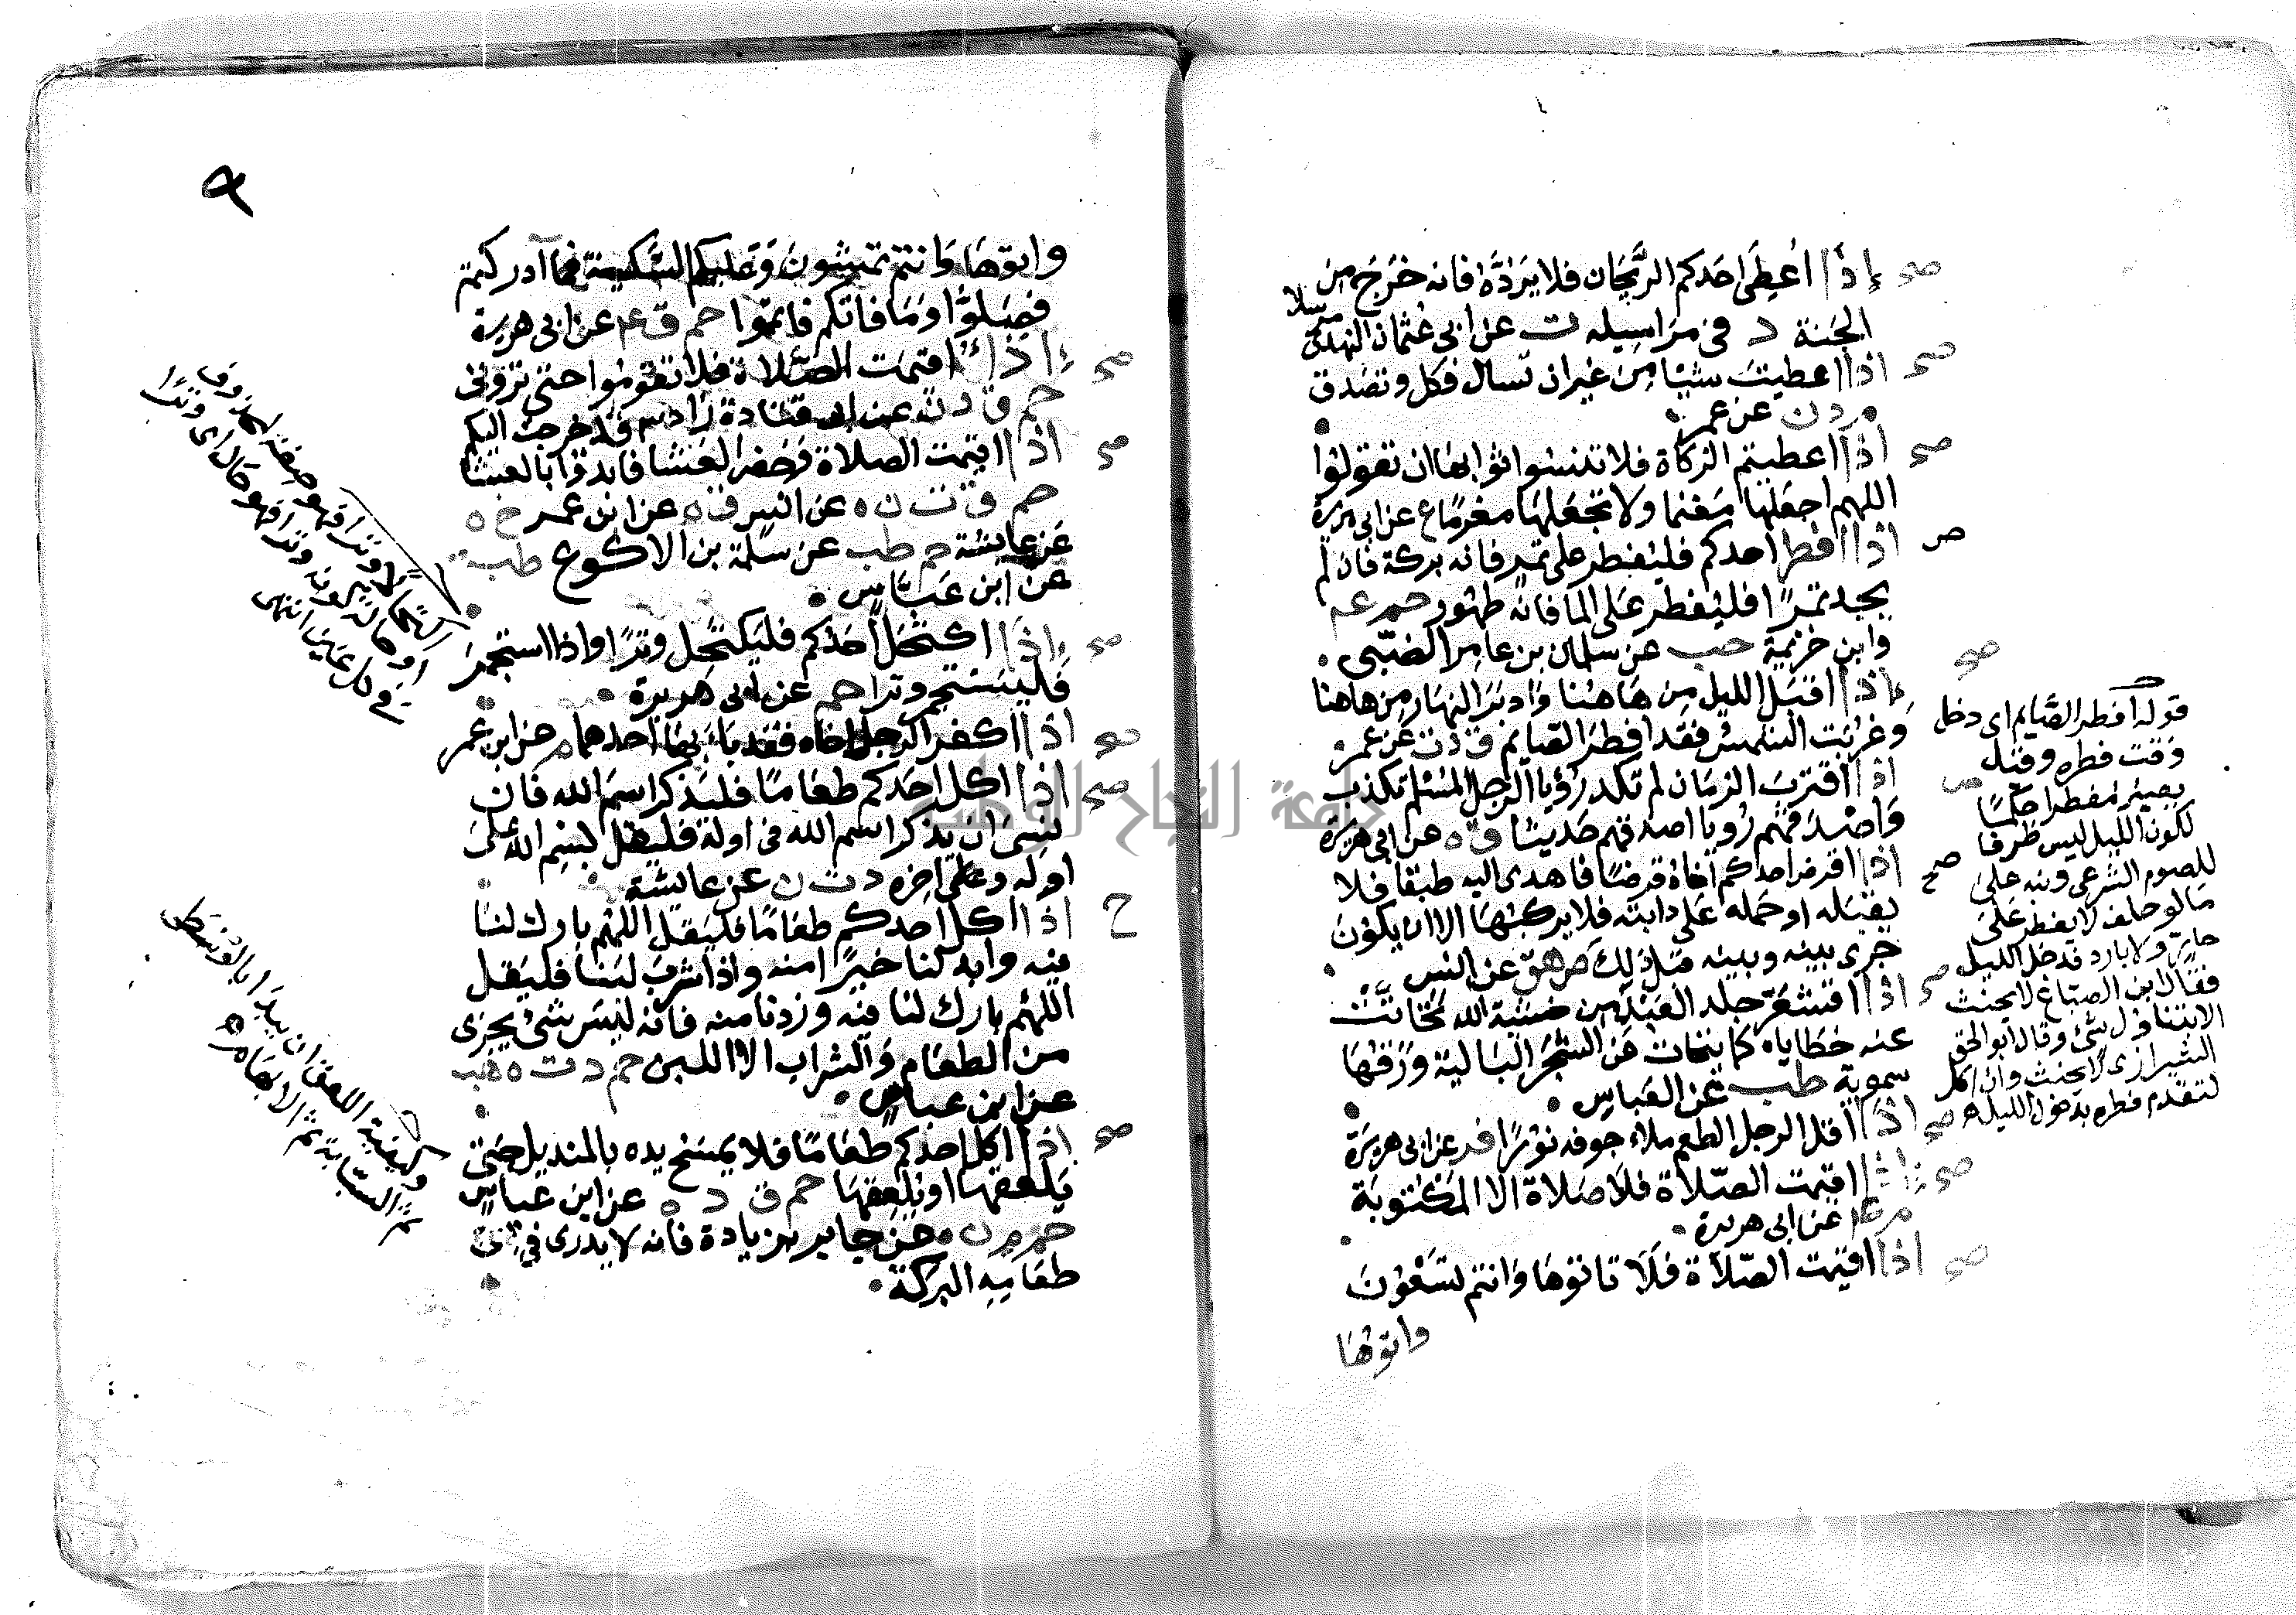 صح إذا اعطى احدكم الريحان فلا يرده فانه خرج من
الجنة د فى مراسيله ت عن ابى عثمان النهدى مرسلا
صح اذا اعطيت شيئا من غير ان تسال فكل وتصدق
م د ن عن عمر
صح اذا اعطيتم الزكاة فلا تنسوا ثوابها ان تقولوا
اللهم اجعلها مغنما ولا تجعلها مغرما ع عن ابى هريرة
صح اذا افطر احدكم فليفطر على تمر فانه بركة فان لم
يجد تمرا فليفطر على الما فانه طهور حم عه
وابن خزيمة حب عن سلمان بن عامر الضبى
صح إذا اقبل الليل من هاهنا وادبر النهار من هاهنا
وغربت الشمس فقد افطر الصايم ق د ت عن عمر
صح اذا اقترب الزمان لم تكد رؤيا الرجل المسلم تكذب
واصدقهم رويا اصدقهم حديثا ق ه عن ابى هريرة
صح اذا اقرض احدكم اخاه قرضا فاهدى اليه طبقا فلا
يقبله او حمله على دابته فلا يركبها الا ان يكون
جرى بينه وبينه قبل ذلك ص هق عن انس
صح اذا اقشعر جلد العبد من خشية الله تحاتت
عنه خطاياه كما يتحات عن الشجر البالية ورقها
سموية طب عن العباس
صح اذا اقل الرجل الطعم ملاء جوفه نورا فر عن ابى هريرة
صح إذا اقيمت الصلاة فلا صلاة الا المكتوبة
م عه عن ابى هريرة
صح اذا اقيمت الصلاة فلا تاتوها وانتم تسعون
واتوها
قوله افطر الصايم اى دخل
وقت فطره وقيل
يصير مفطرا حكما
لكون الليل ليس ظرفا
للصوم الشرعى وبنه على
ما لو حلف لا يفطر على
حار ولا بارد فدخل الليل
فقال ابن الصباغ لا يحنث
الا بتناول شئ وقال ابو اسحق
الشيرازى لا يحنث وان اكل
لتقدم فطره بدخول الليل ه
٩
واتوها وانتم تمشون وعليكم السكينة فما ادركتم
فصلوا وما فاتكم فاتموا حم ق عه عن ابى هريرة
صح إذا اقيمت الصلاة فلا تقوموا حتى ترونى
حم ق د ن عن ابى قتادة زاد قد خرجت اليكم
صح اذا اقيمت الصلاة وحضر العشا فابدؤا بالعشا
حم ق ت ن ه عن انس ق ه عن ابن عمر خ ه
عن عايشة حم طب عن سلمة بن الاكوع طب
عن ابن عباس
صح إذا اكتحل احدكم فليكتحل وترا واذا استجمر
فليستجمر وترا حم عن ابى هريرة
صح اذا اكفر الرجل اخاه فقد باء بها احدهما م عن ابن عمر
صح اذا اكل احدكم طعاما فليذكر اسم الله فان
نسى ان يذكر اسم الله فى اوله فليقل بسم الله على
اوله وعلى اخره د ت ن عن عايشة
ح اذا اكل احدكم طعاما فليقل اللهم بارك لنا
فيه وابدلنا خيرا منه واذا شرب لبنا فليقل
اللهم بارك لنا فيه وزدنا منه فانه ليس شئ يجزى
من الطعام والشراب الا اللبن حم د ت ه هب
عن ابن عباس
صح اذا اكل احدكم طعاما فلا يمسح يده بالمنديل حتى
يلعقها او يلعقها حم ق د ه عن ابن عباس
حم م ن ه عن جابر بزيادة فانه لا يدرى فى اى
طعامه البركة
وترا فهو صفة لمحذوف
وترا فهو حال اى وترا
فى كل عين انتهى
وكيفية اللعق ان يبدا بالوسطى
ثم السبابة ثم الابهام ه
جامعة النجاح الوطنية